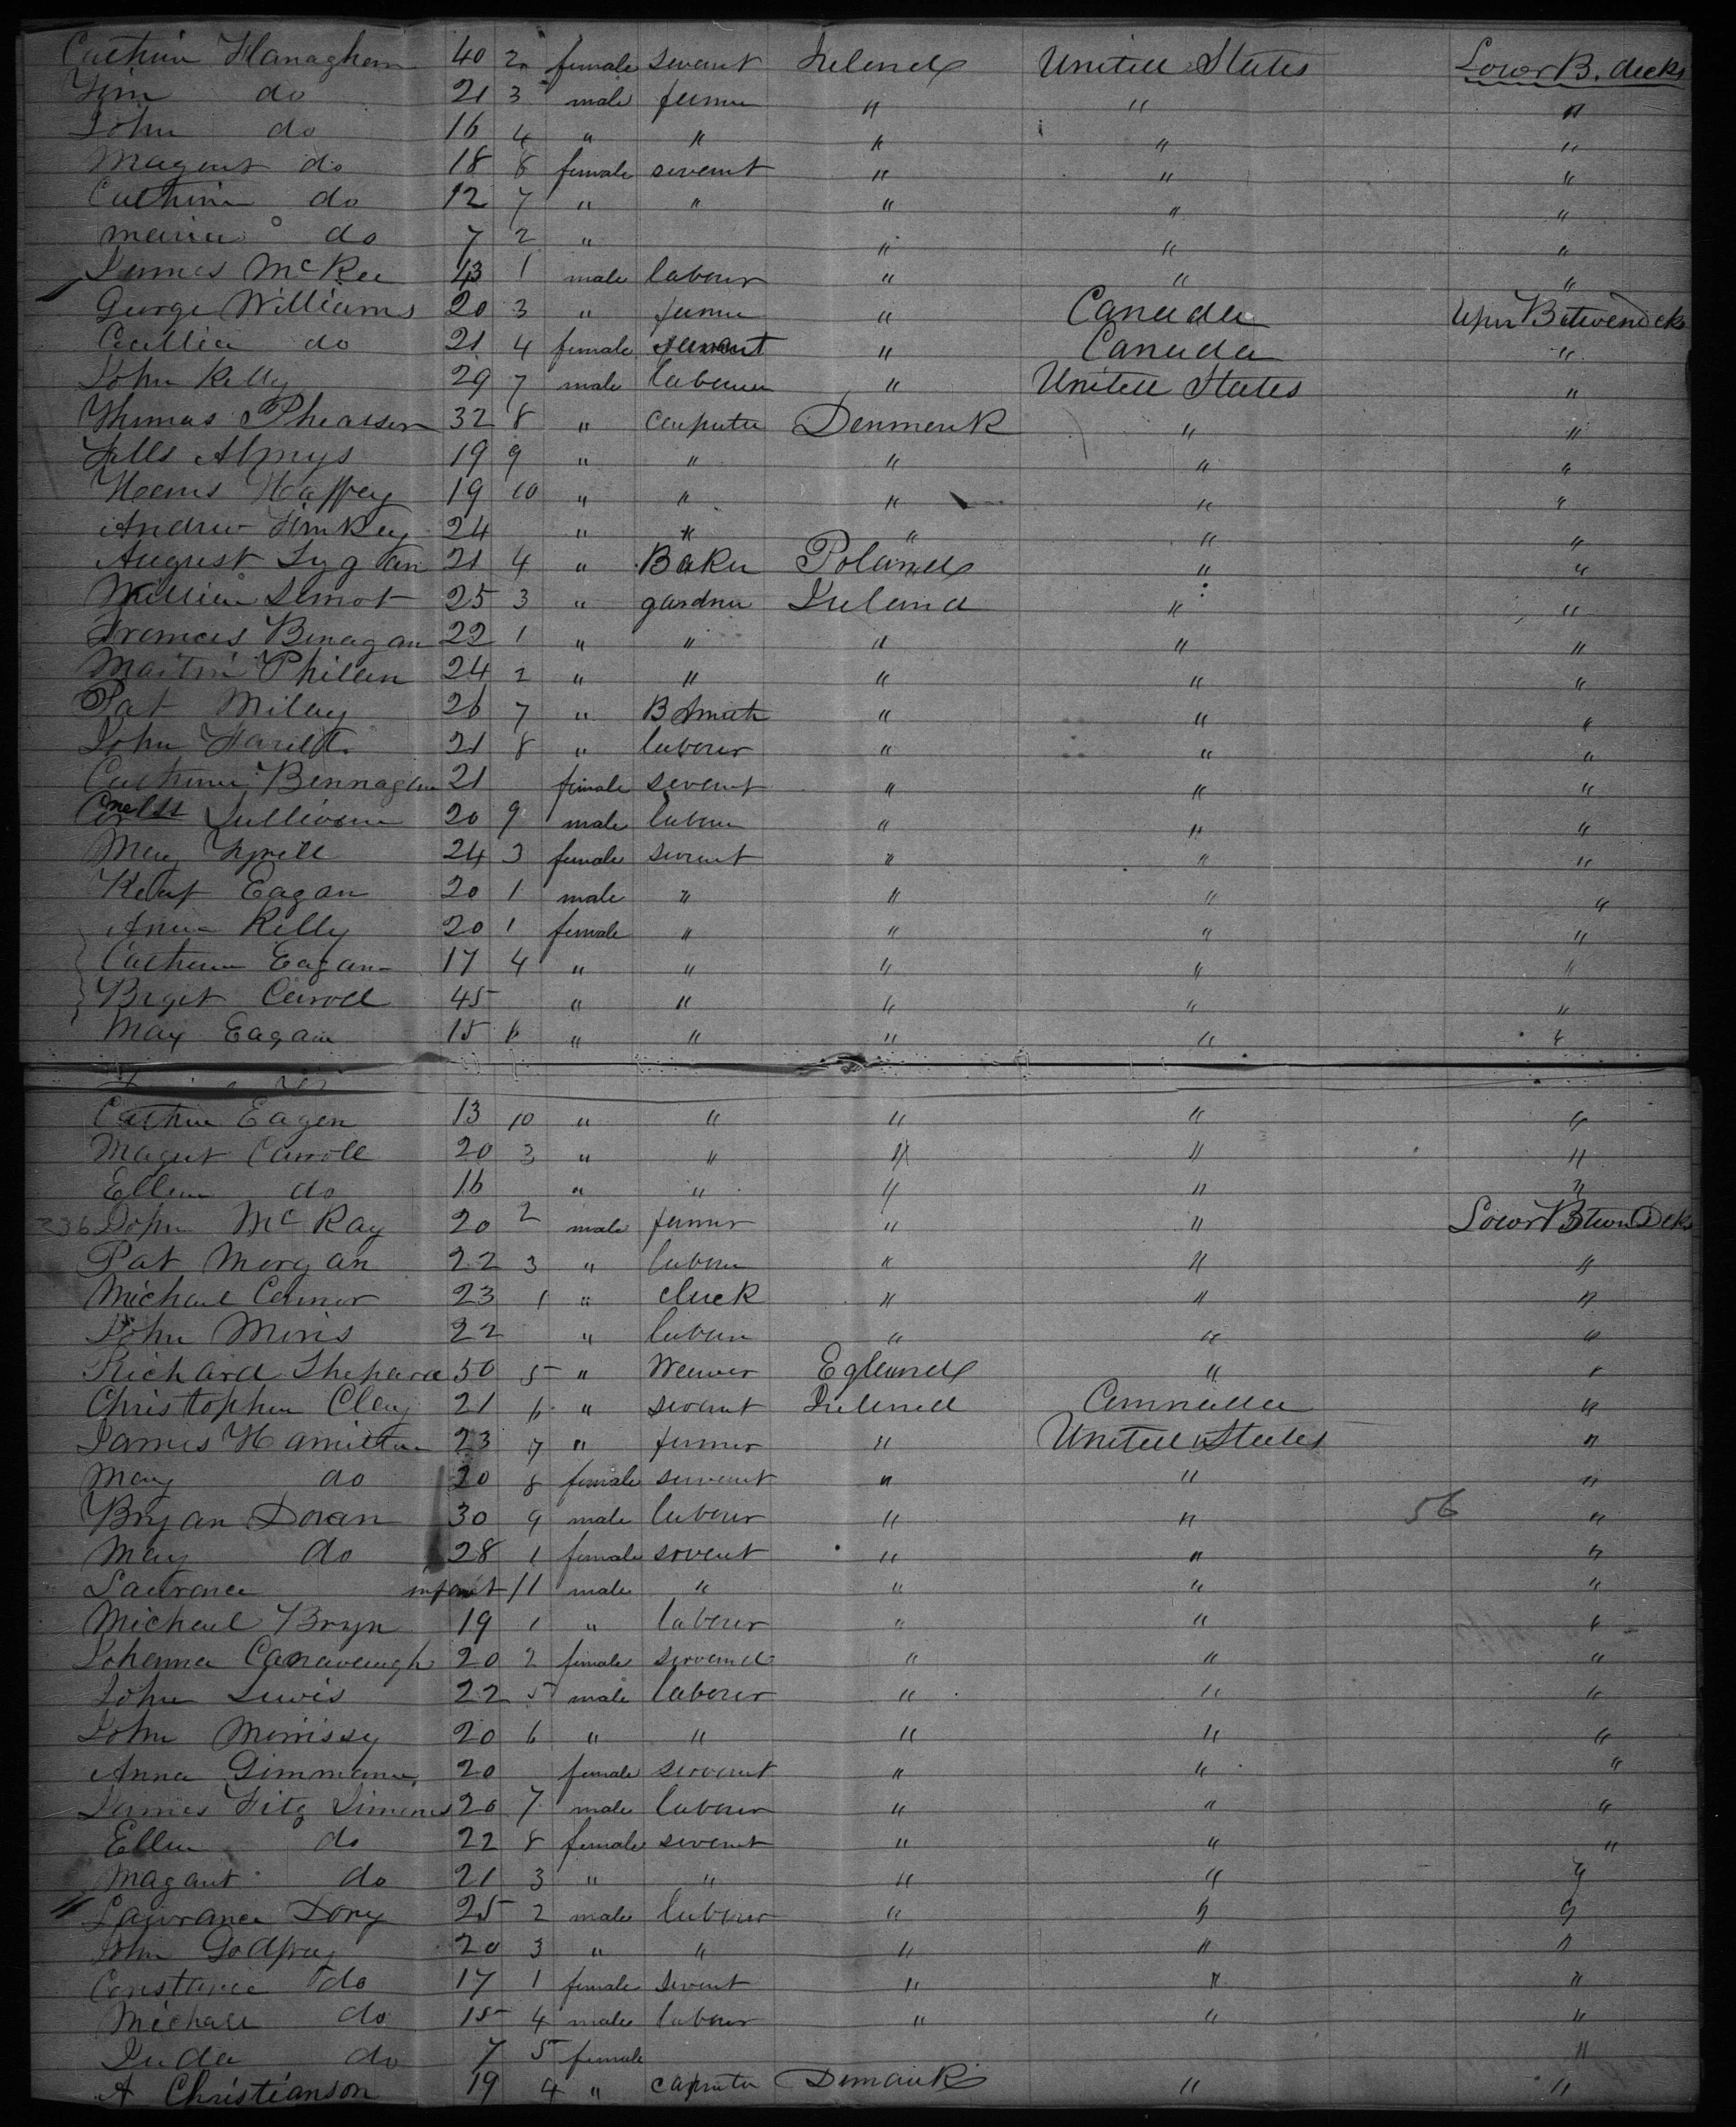 Cathrin Flanaghan 40 2 female servant Ireland United States Lower B. decks
Jim do 21 3 male farmer " " "
John do 16 4 " " " " "
Magart do 18 8 female servant " " "
Cathrin do 12 7 " " " " "
maria do 7 2 " " " "
James McKee 43 1 male labour " " "
George Williams 20 3 " farmer " Canada Upper Betweendeks
Cecillia do 21 4 female servant " Canada "
John Kelly 29 7 male labourer " United States "
Thomas 32 8 " carpnter Denmark " "
19 9 " " " " "
19 10 " " " " "
Andrew 24 " " " " "
August 21 4 " Baker Poland " "
William 25 3 " gardner Ireland " "
Frances Benagan 22 1 " " " " "
Martin Philan 24 2 " " " " "
Pat Milay 26 7 " B Smith " " "
John 21 8 " labourer " " "
Cathrine Bennagan 21 female servant " " "
Sullivan 20 9 male labour " " "
Mary 24 3 female servant " " "
Eagan 20 1 male " " " "
Anna Kelly 20 1 female " " " "
Cathrine Eagan 17 4 " " " " "
Briget Carroll 45 " " " " "
Mary Eagan 15 6 " " " " "
Cathrin Eagen 13 10 " " " " "
Magret Carroll 20 3 " " " " "
Ellen do 16 " " " " "
236 John McKay 20 2 male farmer " " Lower Btwen Deks
Pat Morgan 22 3 " labour " " "
Michael Connor 23 1 " clerk " " "
John Moris 22 " labour " " "
Richard Shepard 50 5 " Weaver Egland " "
Christopher Clary 21 6 " servant Ireland Cannada "
James Hamilton 23 7 " farmer " United States "
Mary do 20 8 female servant " " "
Bryan Doran 30 9 male labour " " 56 "
Mary do 28 1 female servent " " "
Lawrence infant 11 male " " " "
Michael Bryn 19 1 " labourer " " "
Johanna Canavaugh 20 2 female servant " " "
John Lewis 22 5 male labourer " " "
John Morrissy 20 6 " " " " "
Anna Simmans 20 female servant " " "
James Fitz Simens 20 7 male labourer " " "
Ellen do 22 8 female servant " " "
Magart do 21 3 " " " " "
Lawrance Dory 25 2 male labourer " " "
John Godfray 20 3 " " " " "
Constance do 17 1 female servent " " "
Michall do 15 4 male labour " " "
Juda do 7 5 female "
A Christianson 19 4 " carpnter Denmark " "